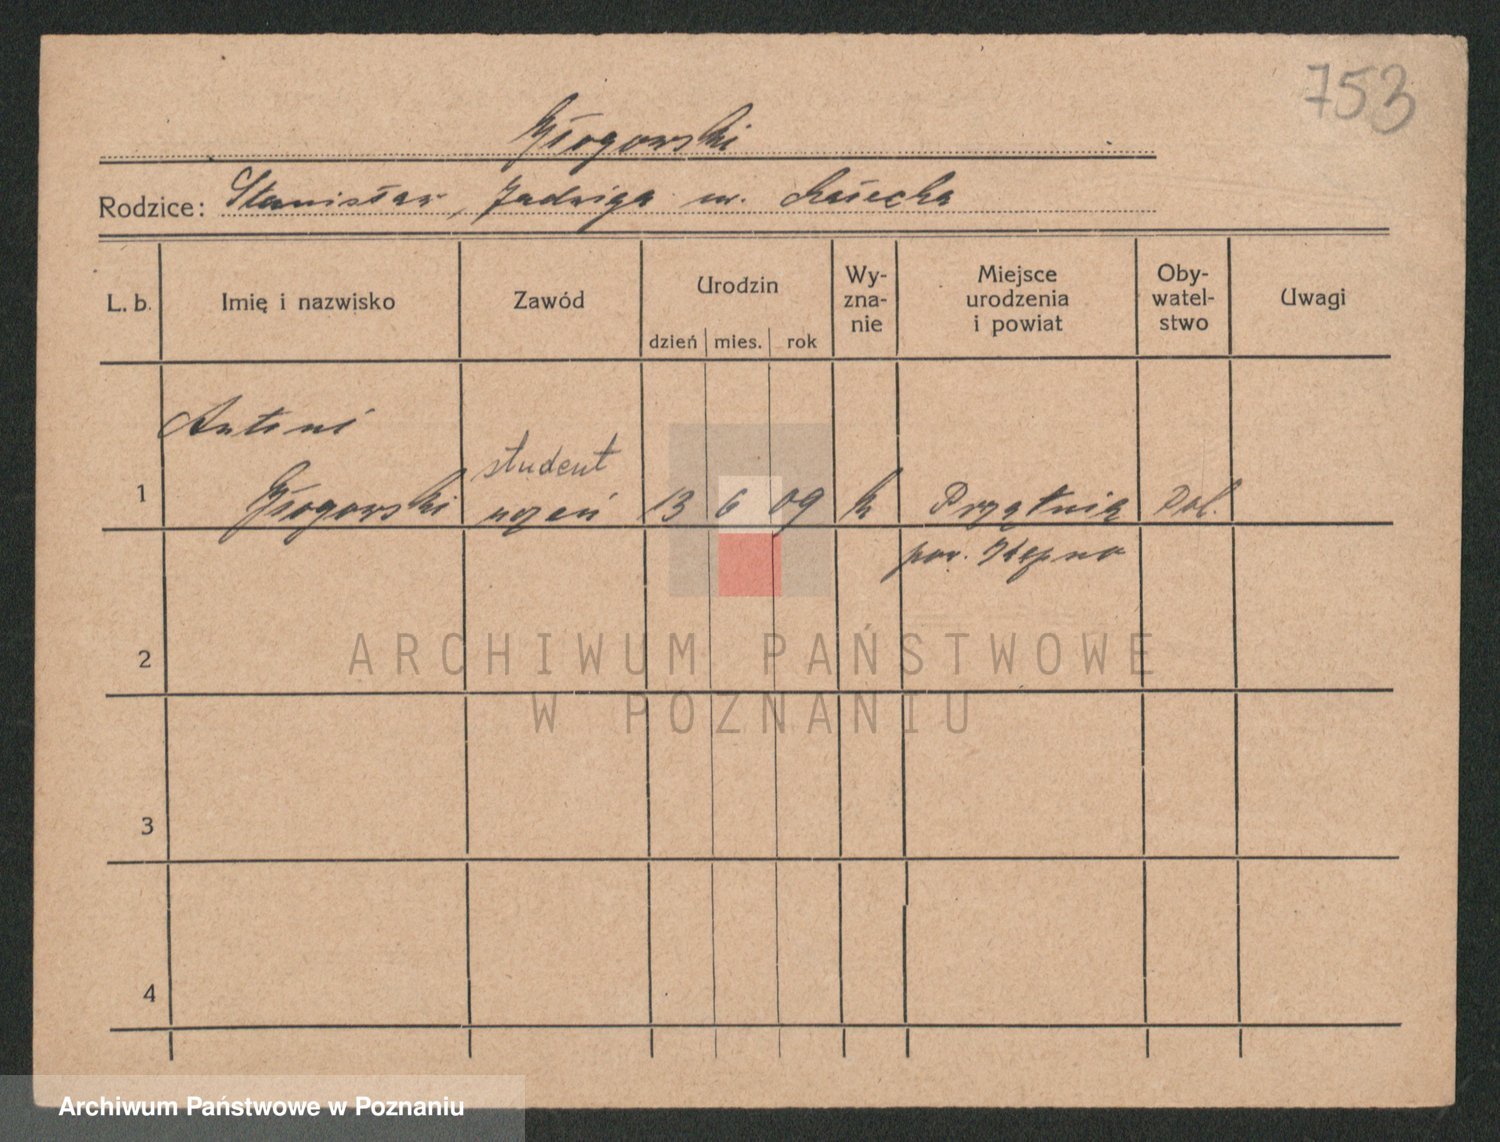 753
Głogowski
Rodzice: Stanisław, Jadwiga
L. b.
Imię i nazwisko
Zawód
Urodzin
dzień
mies.
rok
Wy-
zna-
nie
Miejsce
urodzenia
i powiat
Oby-
watel-
stwo
Uwagi
1
Antoni
Głogowski
student
uczeń
13
6
09
k
Przytnia
Pol.
pow. Kępno
2
3
4
ARCHIWUM PAŃSTWOWE
W POZNANIU
Archiwum Państwowe w Poznaniu